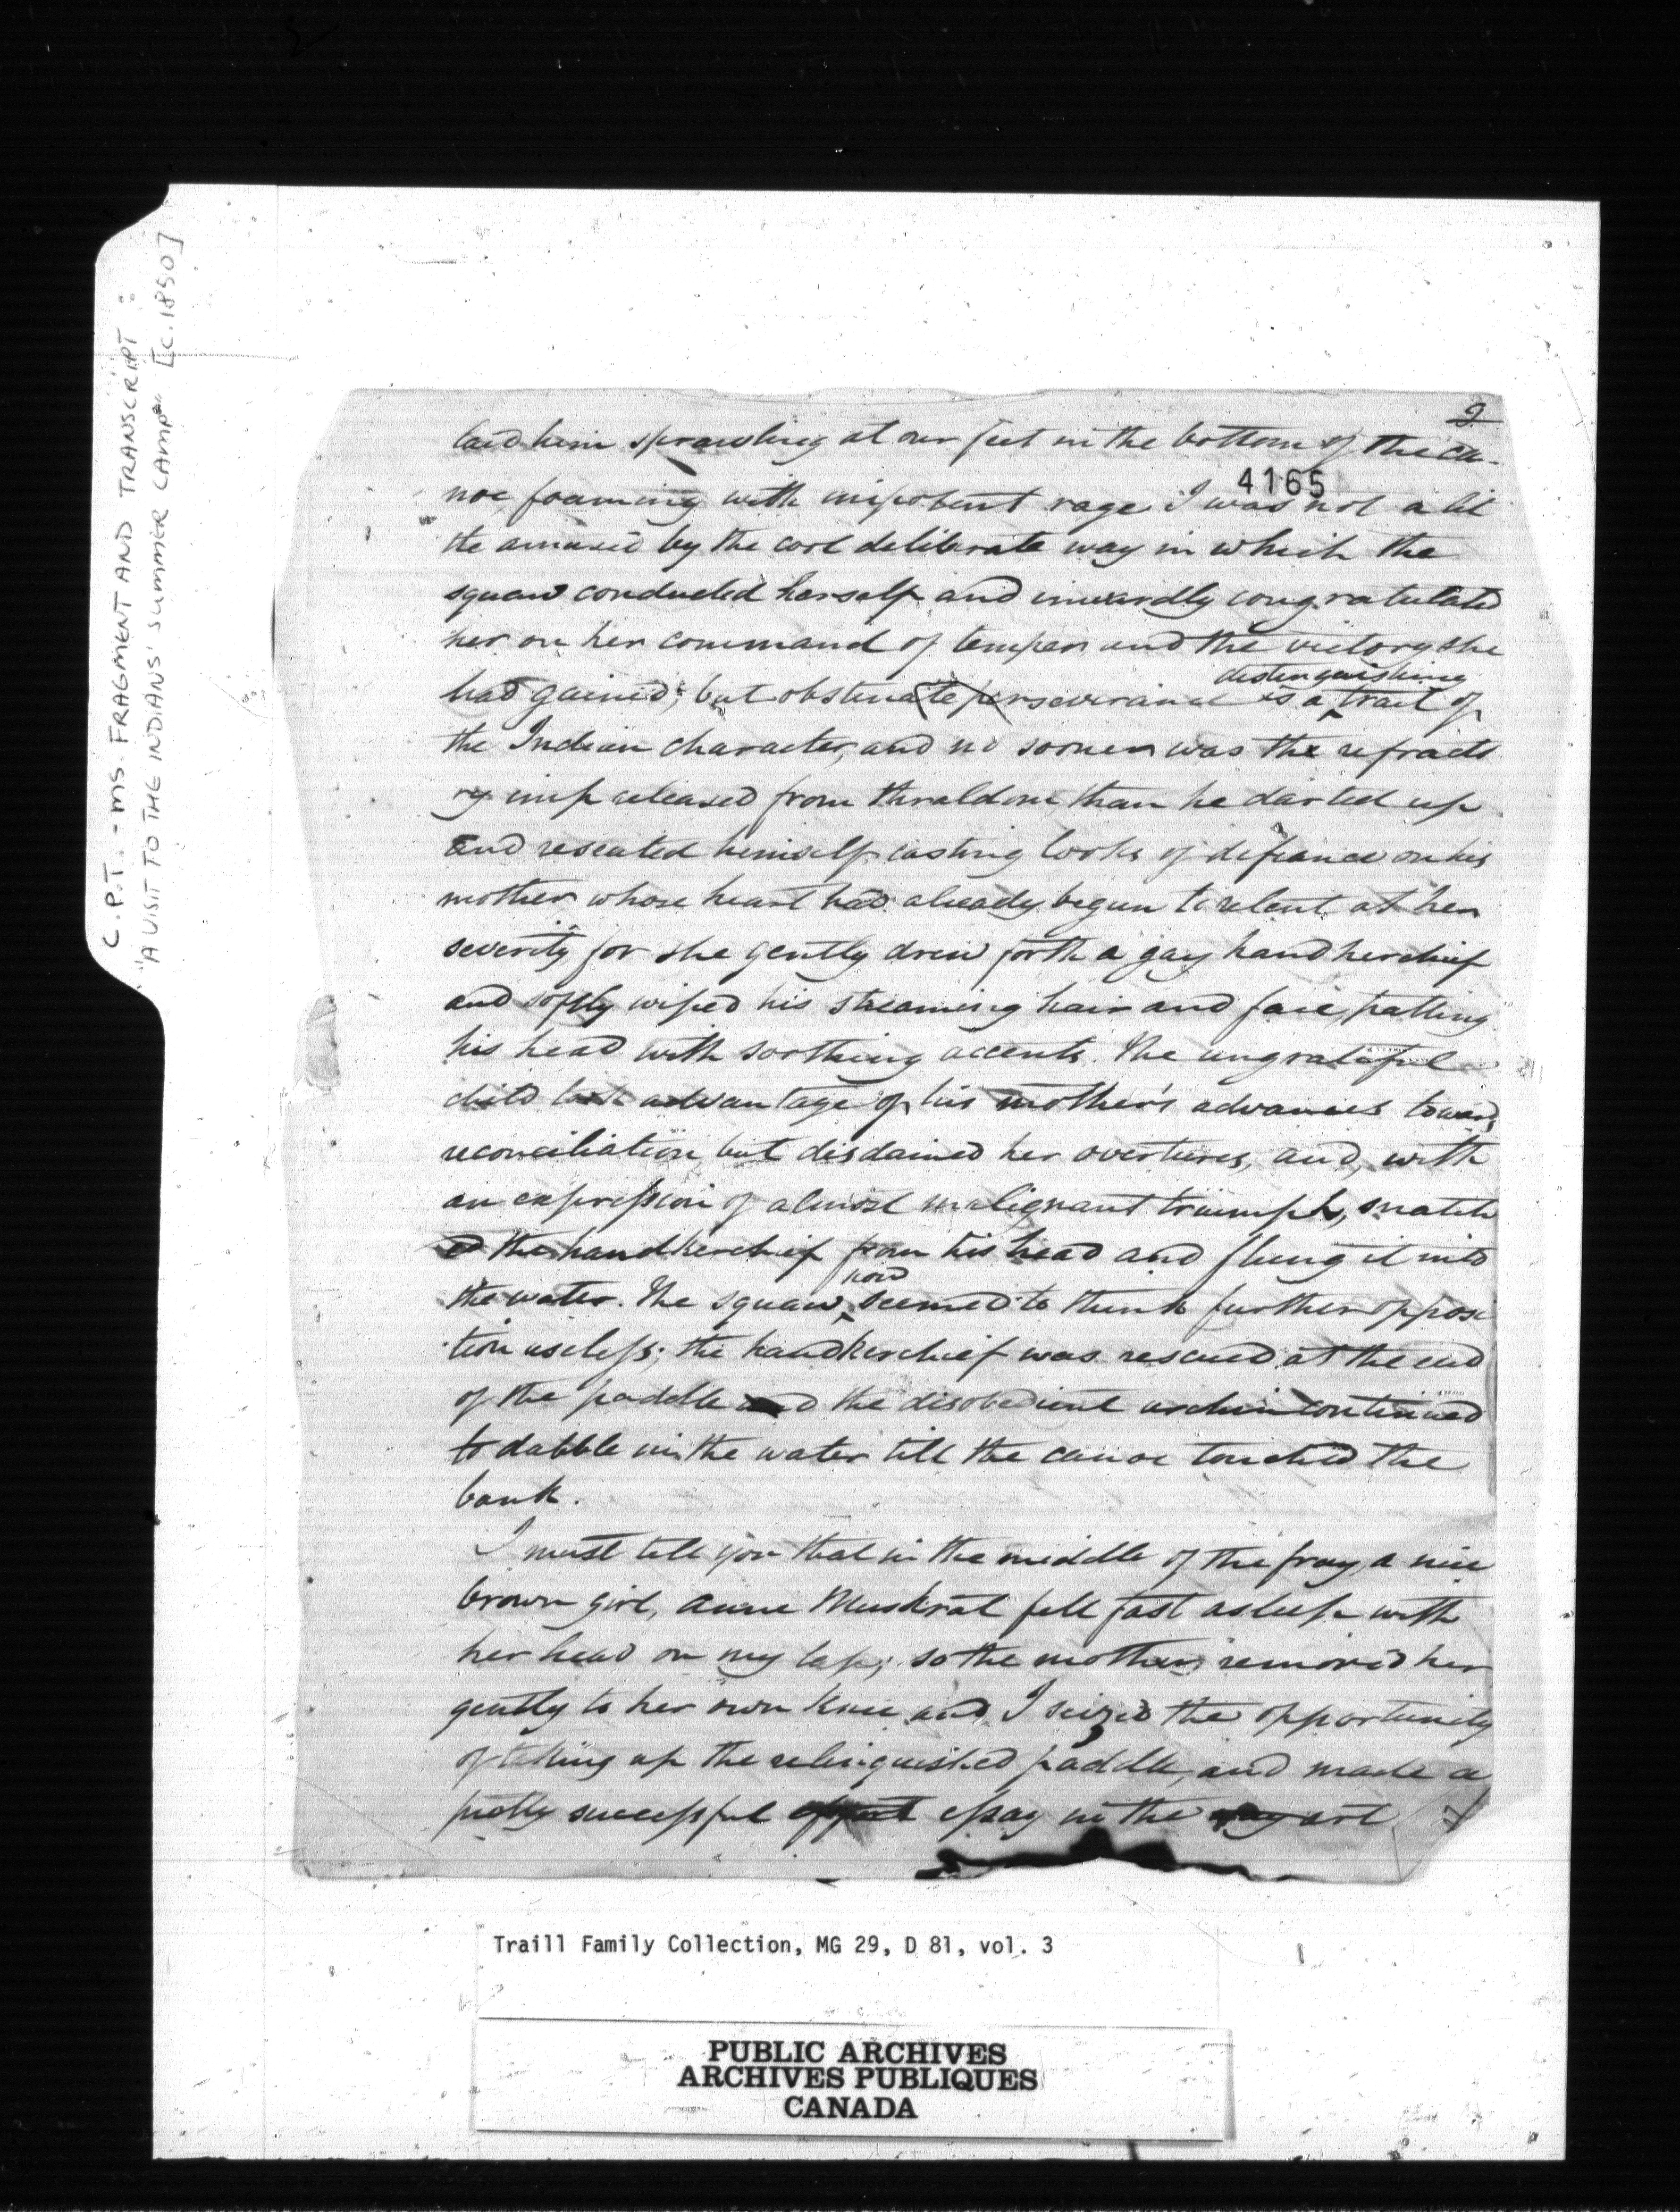 C.P.T. - MS. FRAGMENT AND TRANSCRIPT :
"A VISIT TO THE INDIANS' SUMMER CAMP" [c.1850]
2
laid him sprawling at our feet in the bottom of the ca-
4165
noe foaming with impotent rage. I was not a lit
tle amused by the cool deliberate way in which the
squaw conducted herself and inwardly congratulated
her on her command of temper and the victory she
distinguishing
had gained; but obstinate perseverance is a trait of
the Indian character, and no sooner was the refracto
ry imp released from thraldom than he darted up
and reseated himself, casting looks of defiance on his
mother whose heart had already begun to relent at her
severity for she gently drew forth a gay handkerchief
and softly wiped his streaming hair and face, patting
his head with soothing accents. The ungrateful
child took advantage of his mother's advances towards
reconciliation but disdained her overtures, and, with
an expression of almost malignant triumph, snatch
ed the handkerchief from his head and flung it into
now
the water. The squaw seemed to think further opposi
tion useless; the handkerchief was rescued at the end
of the paddle and the disobedient urchin continued
to dabble in the water till the canoe touched the
bank.
I must tell you that in the middle of the fray, a nice
brown girl, Anne Muskrat fell fast asleep with
her head on my lap; so the mother removed her
gently to her own knee and I seized the opportunity
of taking up the relinquished paddle, and made a
pretty successful essay in the art
Traill Family Collection, MG 29, D 81, vol. 3
PUBLIC ARCHIVES
ARCHIVES PUBLIQUES
CANADA